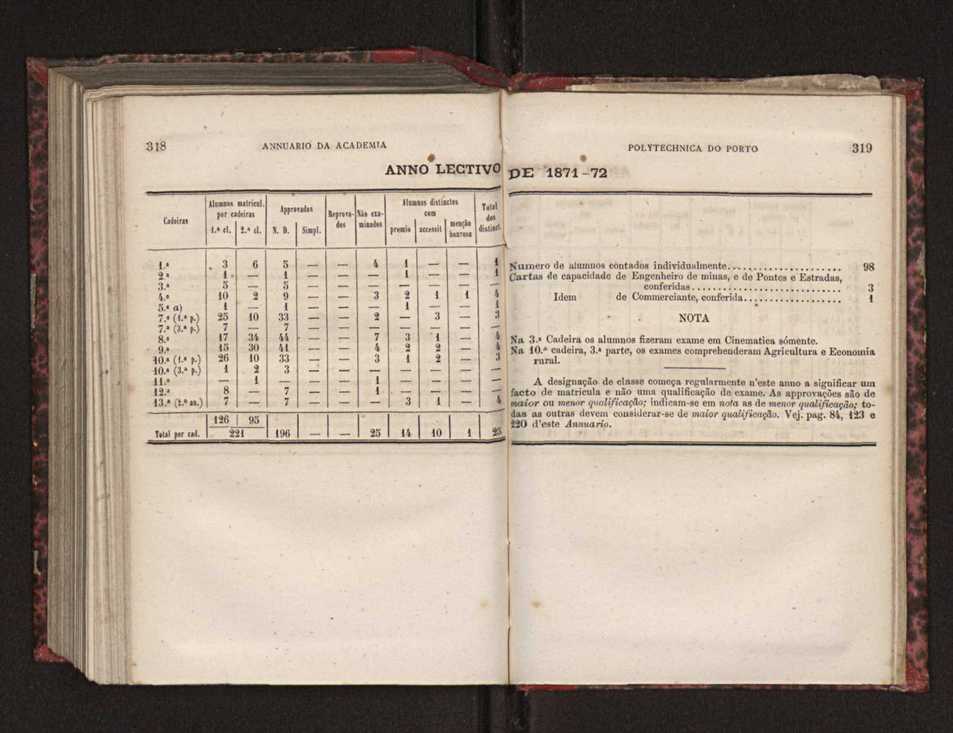 318 ANNUARIO DA ACADEMIA
ANNO LECTIVO
Cadeiras | Alumnos matricul. por cadeiras | Approvados | Reprovados | Não examinados | Alumnos distinctos com | Total dos distinct.
1.ª cl. | 2.ª cl. | N. D. | Simpl. | premio | accessit | menção honrosa
1.ª 3 6 5 — — 4 1 — — 1
2.ª 1 — 1 — — — 1 — — 1
3.ª 5 — 5 — — — — — — —
4.ª 10 2 9 — — 3 2 1 1 4
5.ª a) 1 — 1 — — — 1 — — 1
7.ª (1.ª p.) 25 10 33 — — 2 — 3 — 3
7.ª (3.ª p.) 7 — 7 — — — — — — —
8.ª 17 34 44 — — 7 3 1 — 4
9.ª 15 30 41 — — 4 2 2 — 4
10.ª (1.ª p.) 26 10 33 — — 3 1 2 — 3
10.ª (3.ª p.) 1 2 3 — — — — — — —
11.ª — 1 — — — 1 — — — —
12.ª 8 — 7 — — 1 — — — —
13.ª (2.º an.) 7 — 7 — — — 3 1 — 4
126 95
Total por cad. 221 196 — — 25 14 10 1 25
POLYTECHNICA DO PORTO 319
DE 1871-72
Numero de alumnos contados individualmente...................... 98
Cartas de capacidade de Engenheiro de minas, e de Pontes e Estradas,
conferidas............................. 3
Idem de Commerciante, conferida................... 1
NOTA
Na 3.ª Cadeira os alumnos fizeram exame em Cinematica sómente.
Na 10.ª cadeira, 3.ª parte, os exames comprehenderam Agricultura e Economia
rural.
A designação de classe começa regularmente n'este anno a significar um
facto de matricula e não uma qualificação de exame. As approvações são de
maior ou menor qualificação; indicam-se em nota as de menor qualificação; to-
das as outras devem considerar-se de maior qualificação. Vej. pag. 84, 123 e
220 d'este Annuario.